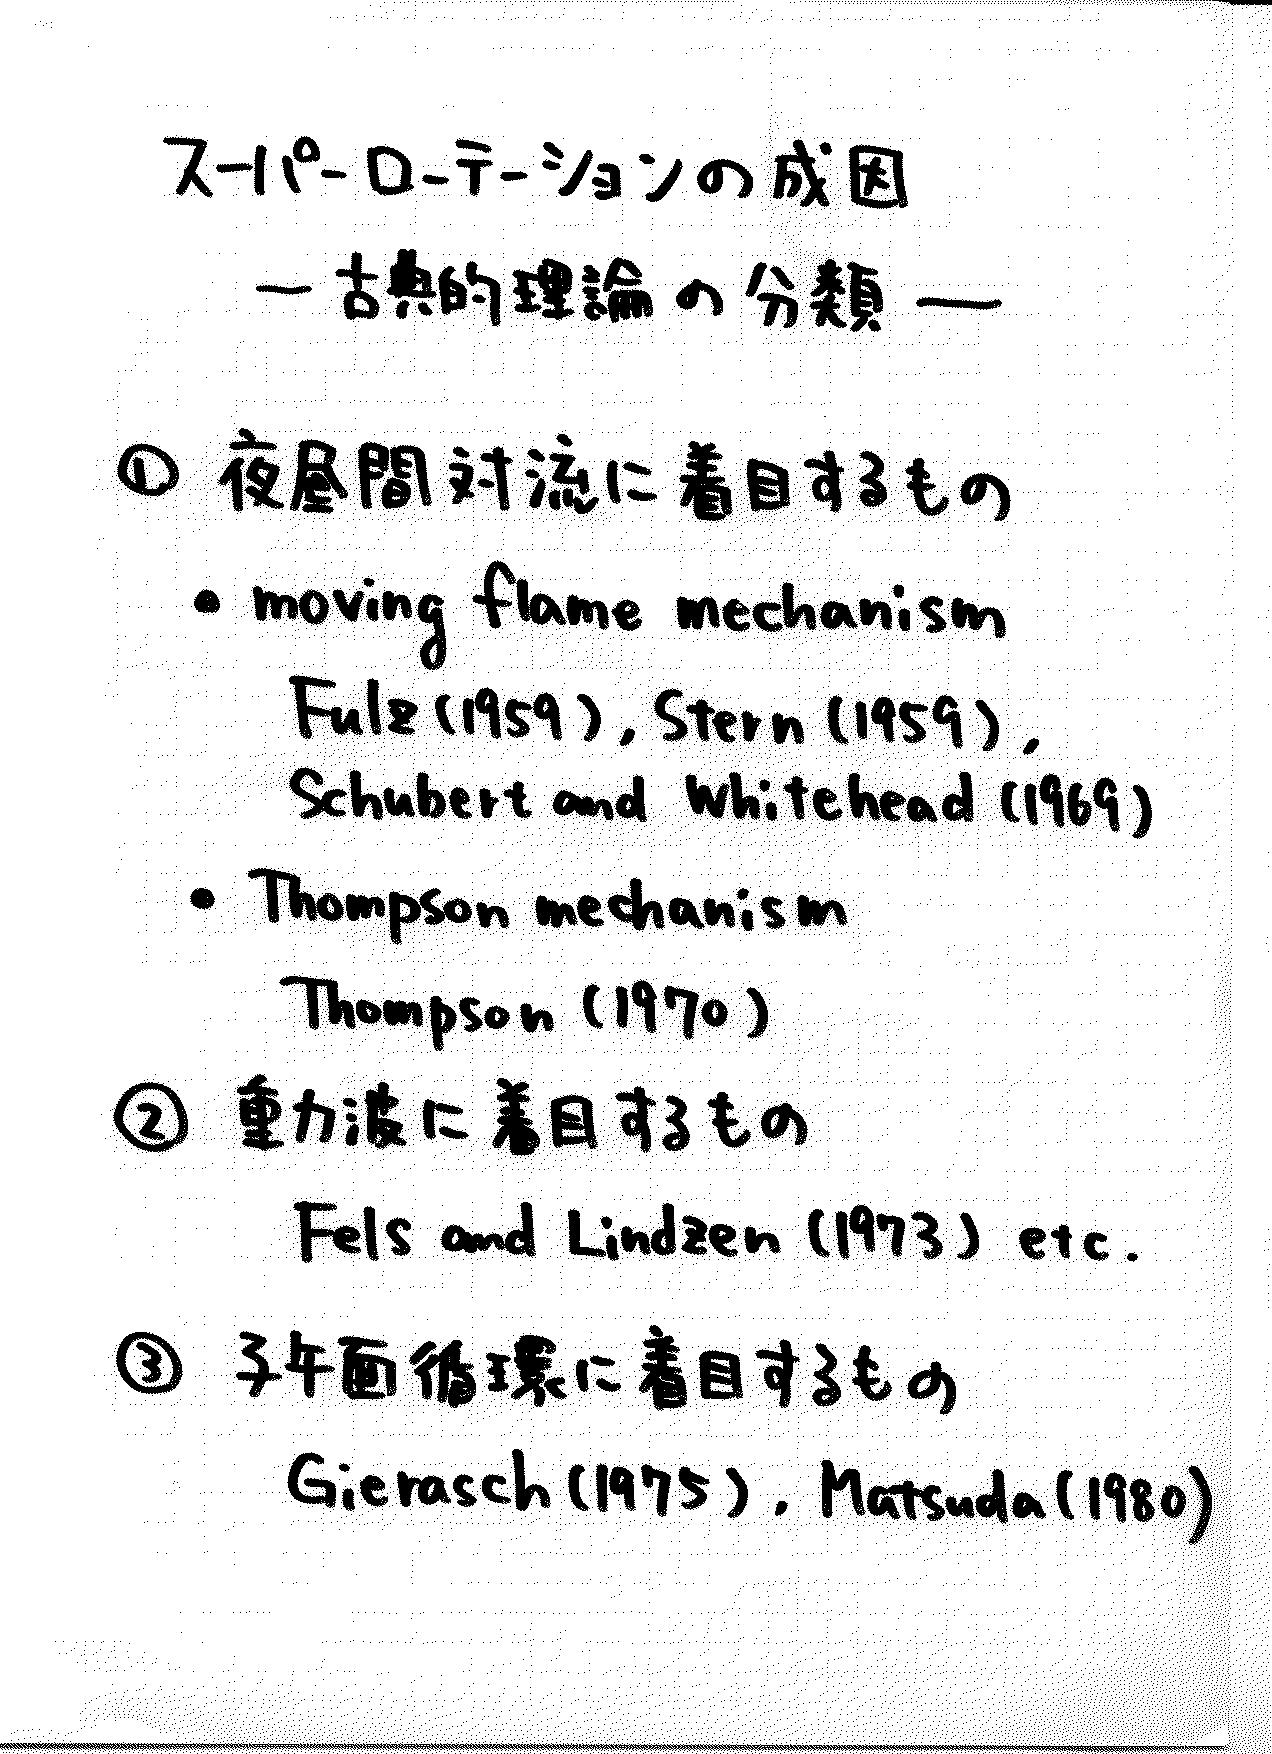 スーパーローテーションの成因
― 古典的理論の分類 ―
① 夜昼間対流に着目するもの
• moving flame mechanism
Fulz (1959), Stern (1959),
Schubert and Whitehead (1969)
• Thompson mechanism
Thompson (1970)
② 重力波に着目するもの
Fels and Lindzen (1973) etc.
③ 子午面循環に着目するもの
Gierasch (1975), Matsuda (1980)